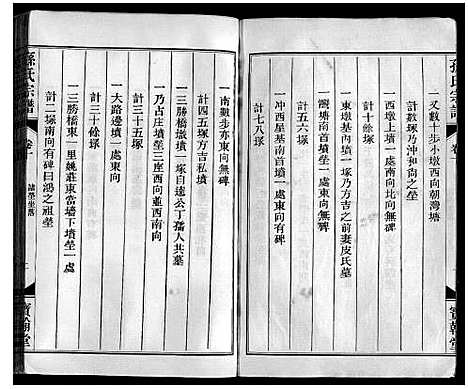 孫氏宗譜
卷一
寶翰堂
一又數十步小墩西向朝灣塘
計數塚乃沖和尚之塋
一西墩上墳一處南向北向無碑
計十餘塚
一東墩基內墳一塚乃方吉之前妻皮氏墓
一灣塘南首墳一處東向無碑
計五六塚
一沖西星基南首墳一處東向有碑
計七八塚
一南數步亦東向無碑
計四五塚方吉私墳
一三勝橋墩墳一塚自遠公丁孺人共墓
一乃占庄墳塋三座西向並西南向
計三十五塚
一大路邊墳一處東向
計三十餘塚
一三勝橋東一里姚莊東當墻下墳塋一處
計二塚南向有碑曰鴻之祖塋
孫氏宗譜
卷一
諸塋坐落
寶翰堂